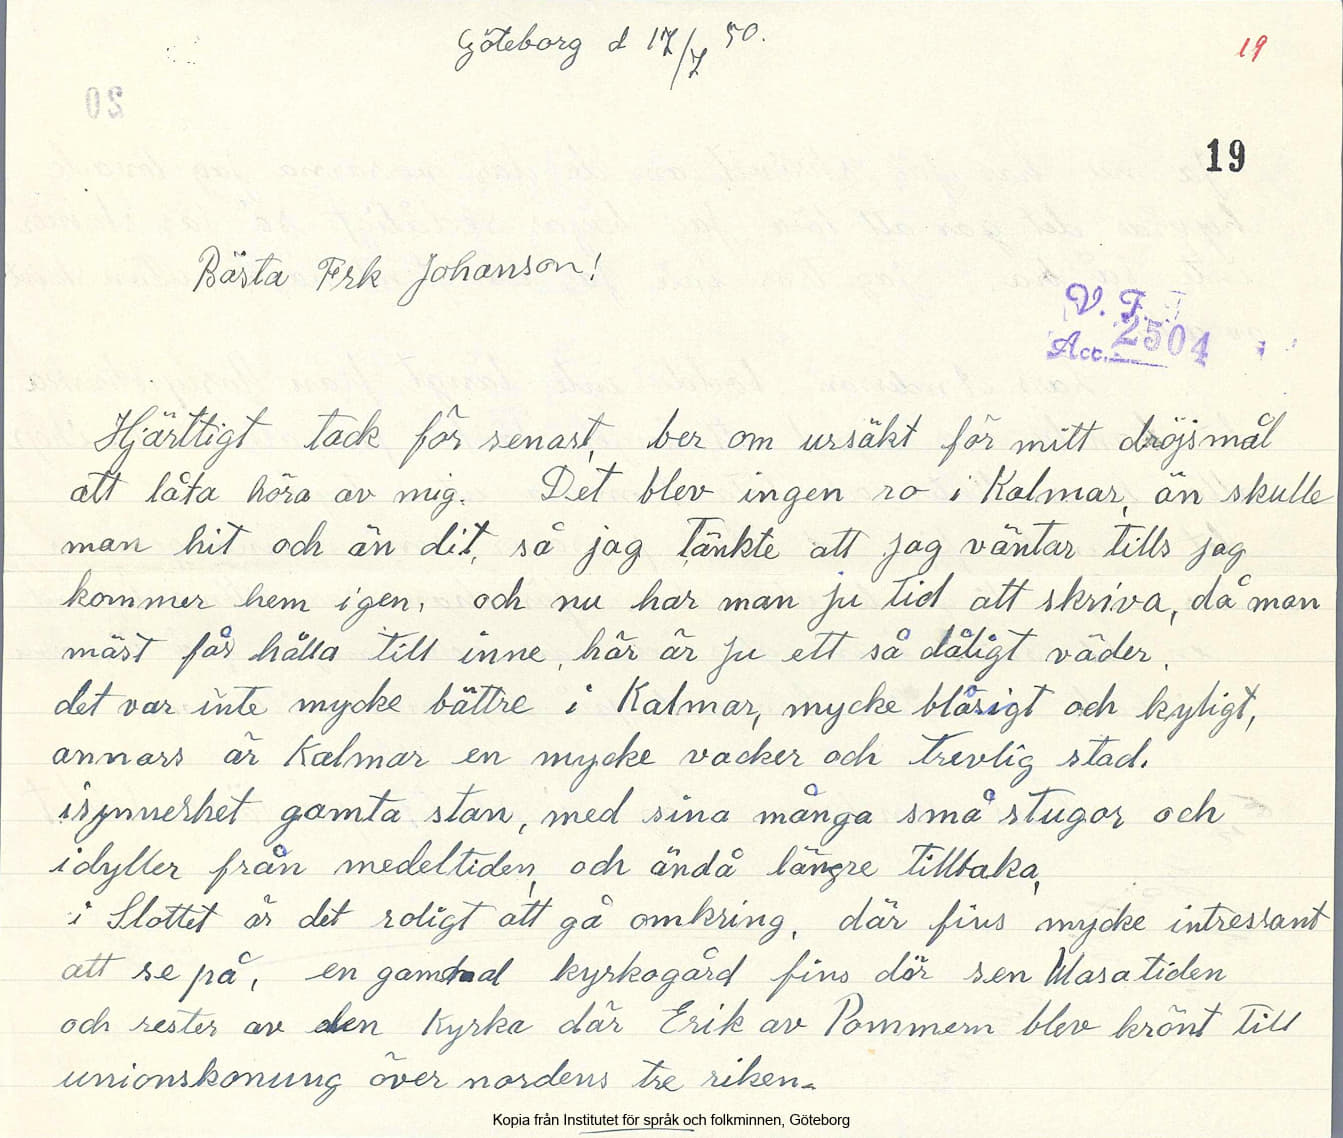 Göteborg d 17/7 50.
19
20
19
Bästa Frk Johanson!
V. F.
Acc. 2504
Hjärttigt tack för senast, ber om ursäkt för mitt dröjsmål
att låta höra av mig. Det blev ingen ro i Kalmar, än skulle
man hit och än dit, så jag tänkte att jag väntar tills jag
kommer hem igen, och nu har man ju tid att skriva, då man
mäst får hålla till inne, här är ju ett så dåligt väder,
det var inte mycke bättre i Kalmar, mycke blåsigt och kyligt,
annars är Kalmar en mycke vacker och trevlig stad.
isynnerhet gamla stan, med sina många små stugor och
idyller från medeltiden, och ändå längre tillbaka,
i Slottet är det roligt att gå omkring, där fins mycke intressant
att se på, en gammal kyrkogård fins där sen Wasatiden
och rester av den Kyrka där Erik av Pommern blev krönt till
unionskonung över nordens tre riken.
Kopia från Institutet för språk och folkminnen, Göteborg